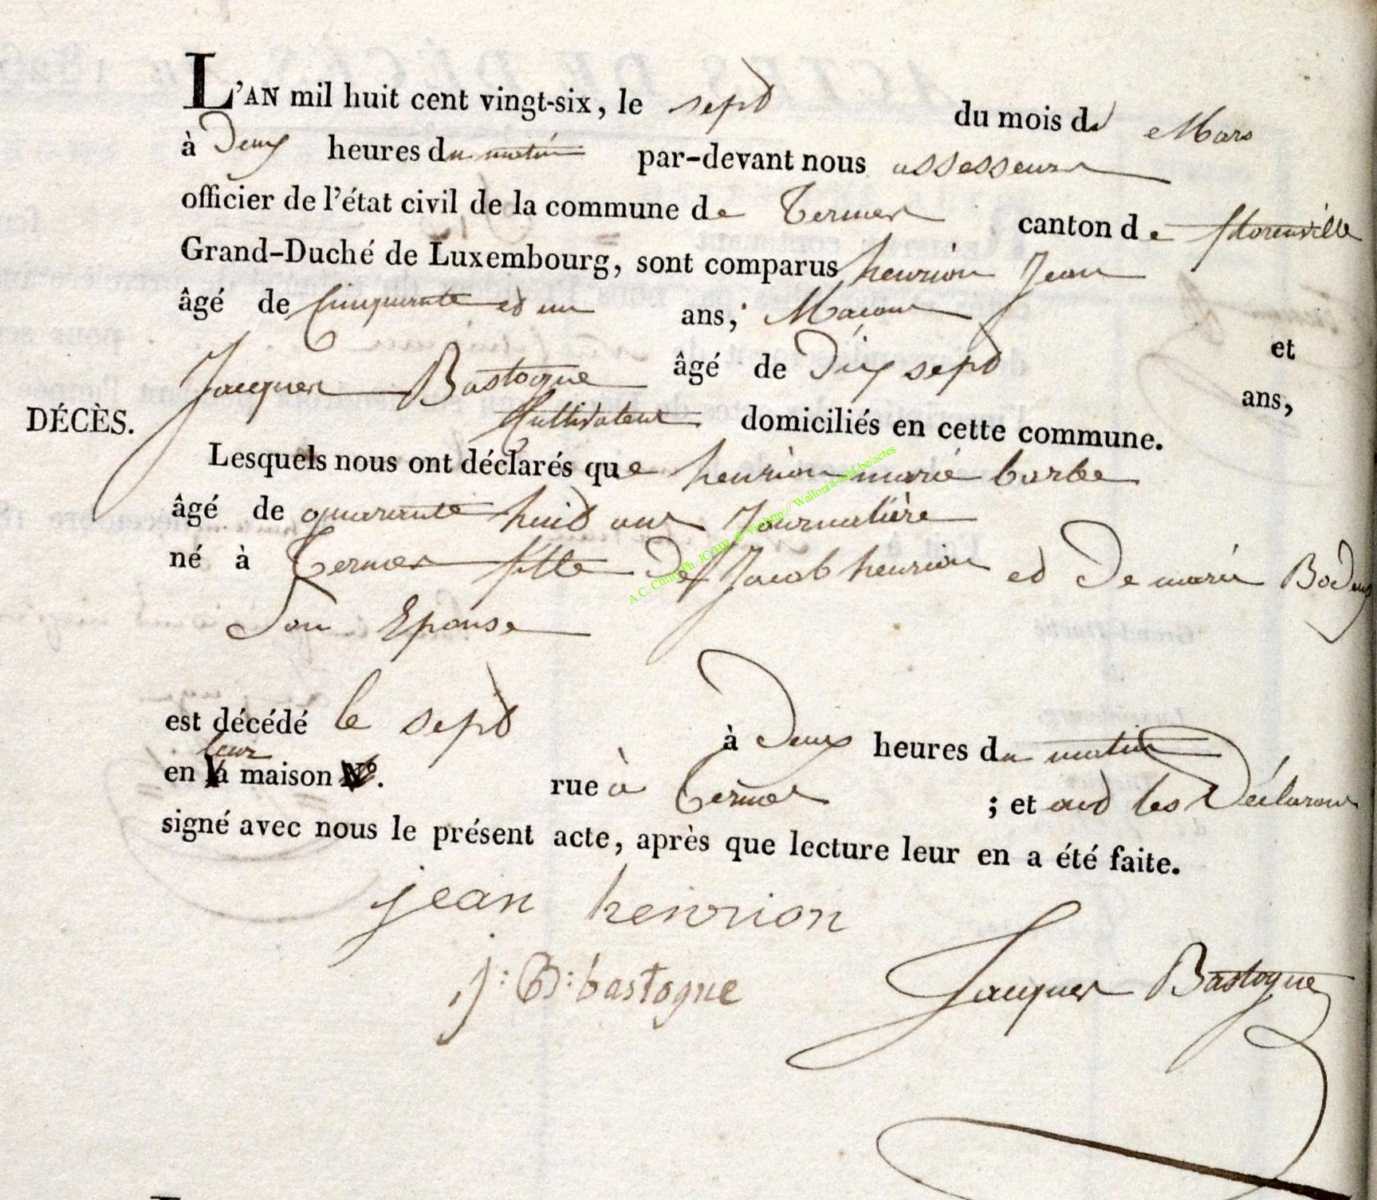 L'AN mil huit cent vingt-six, le sept du mois de Mars
à Deux heures du matin par-devant nous assesseur
officier de l'état civil de la commune de Termes canton de florenville
Grand-Duché de Luxembourg, sont comparus henrion Jean
âgé de Cinquante et un ans, Macon et
Jacques Bastogne âgé de Dix sept ans,
Cultivateur domiciliés en cette commune.
DÉCÈS.
Lesquels nous ont déclarés que henrion marie barbe
âgé de quarante huit ans Journalière
né à Termes fille De Jacob henrion et De marie
Son Epouse
est décédé le sept à Deux heures du matin
en leur maison rue à Termes ; et ont les Déclarans
signé avec nous le présent acte, après que lecture leur en a été faite.
jean henrion
j: B: bastogne
Jacques Bastogne